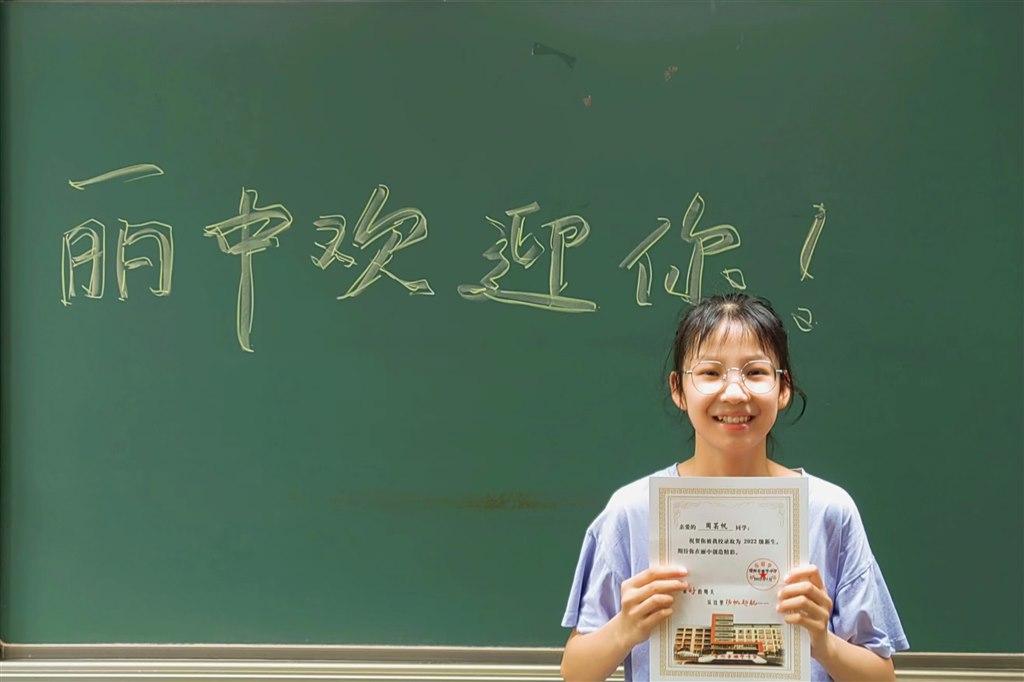 丽中欢迎你!
亲爱的 周芸帆 同学:
祝贺你被我校录取为 2022 级新生。
期待你在丽中创造精彩。